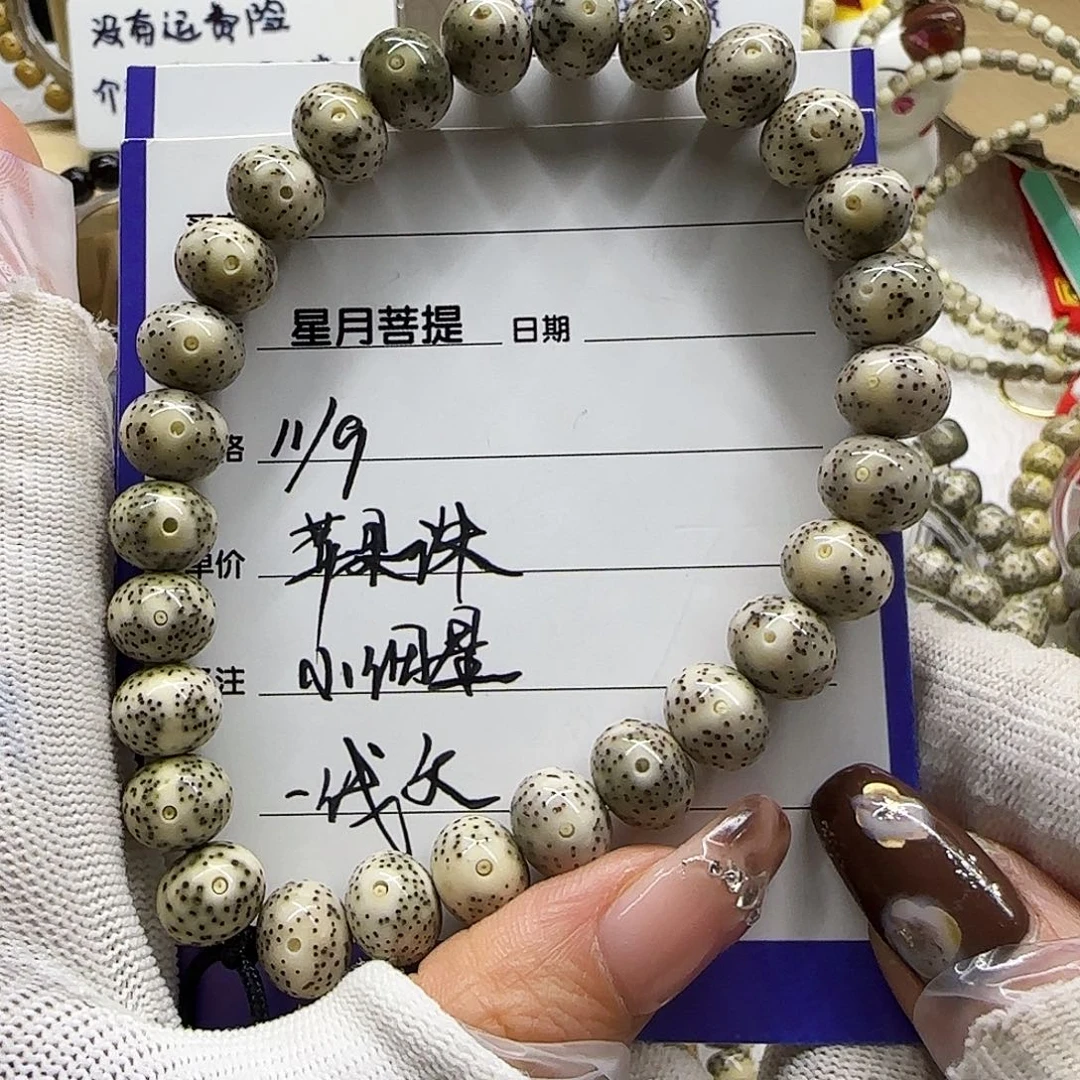 没有运费险
介
星月菩提 日期
格 11/9
单价 苹果珠
注 小佩量
一线欠